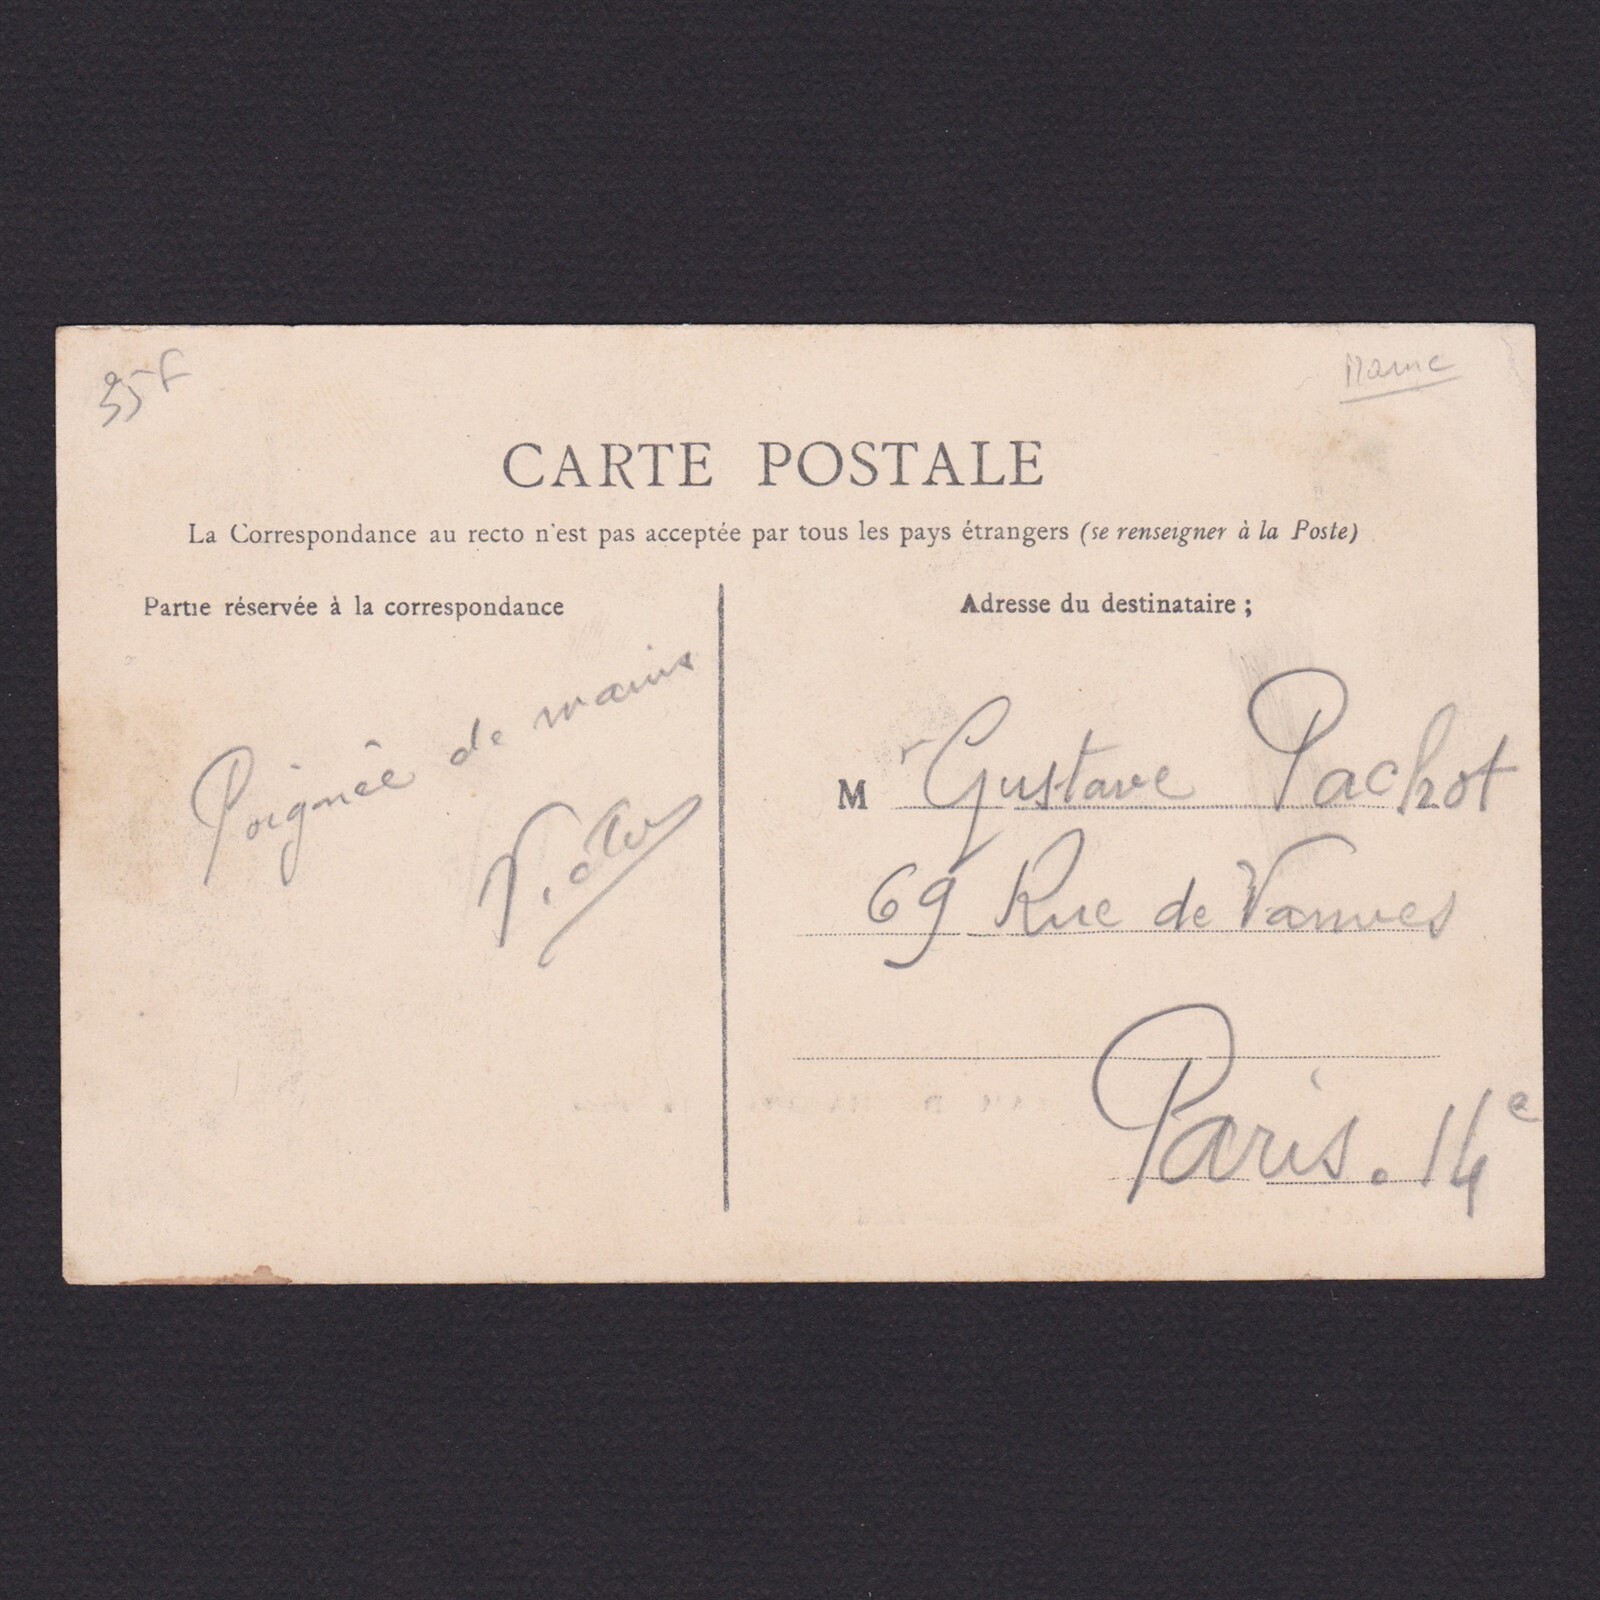 35F
Marne
CARTE POSTALE
La Correspondance au recto n'est pas acceptée par tous les pays étrangers (se renseigner à la Poste)
Partie réservée à la correspondance
Poignée de mains
Victor
Adresse du destinataire ;
M r Gustave Pachot
69 Rue de Vanves
Paris. 14e